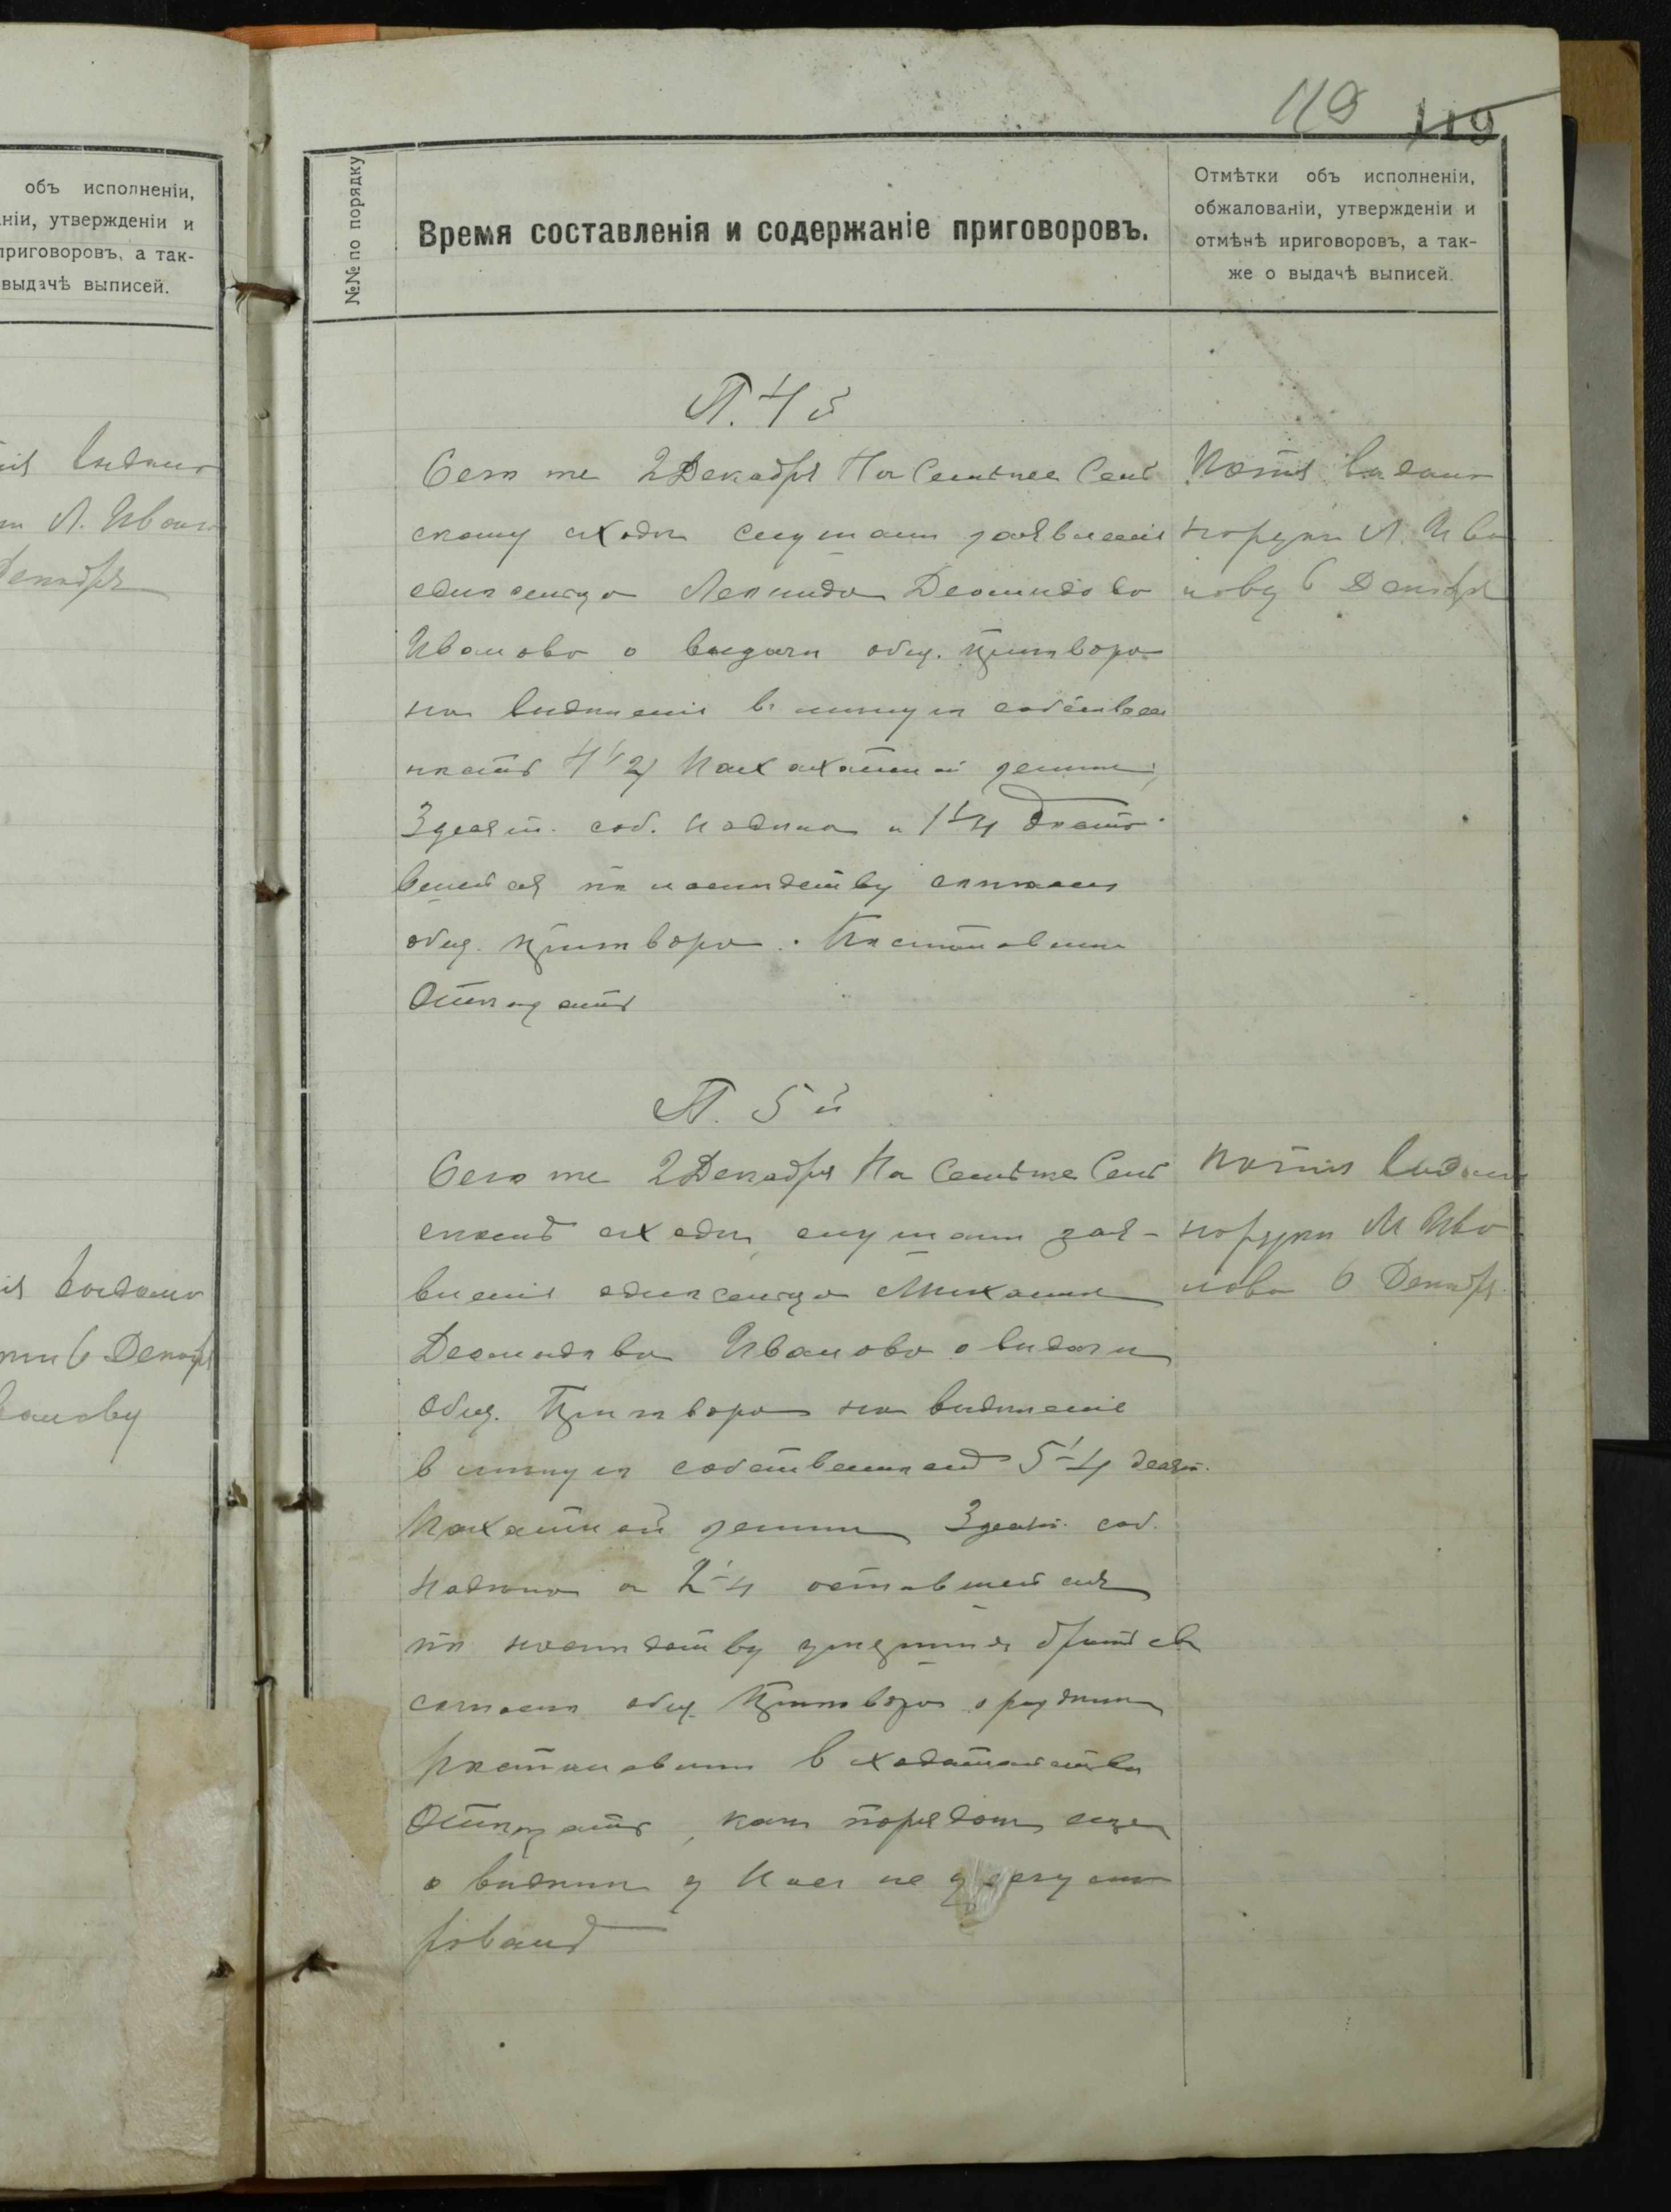 объ исполненіи,
ніи, утвержденіи и
приговоровъ, а так-
выдачѣ выписей.
Л. Ивано
Декабря
6 Декабр
119 119
№№ по порядку
Время составленія и содержаніе приговоровъ.
Отмѣтки объ исполненіи,
обжалованіи, утвержденіи и
отмѣнѣ приговоровъ, а так-
же о выдачѣ выписей.
П. 4й
Сего же 2 Декабря На Сельское Сель
скому сходи слушали заявленія
односельца Леонида Деомидова
Иванова о выдачи общ. приговора
на выделеніе в личную собствен
ность 4 1/2 пахахатной земли
3 десят. соб. надела и 1 1/4 достав
вшейся по наследству согласно
общ. приговора. Постановили
Отказать
Копія выдана
на руки Л. Ива
нову 6 Декабря
П. 5й
Сего же 2 Декабря На Сельске Сель
скомъ сходи слушали зая-
вленія односельца Михаила
Деомидова Иванова о выдачи
Общ. Приговора на выделеніе
в личную собственность 5 1/4 десят.
Пахатной земли 3 десят. соб.
надела и 2 1/4 оставшейся
по наследству умершихъ братьев
согласно общ. Приговора о раздили
постановили в ходатайстве
Отказать, как порядок еще
о выдили у нас не
рован
Копія выдана
на руки М Ива
нова 6 Декабря